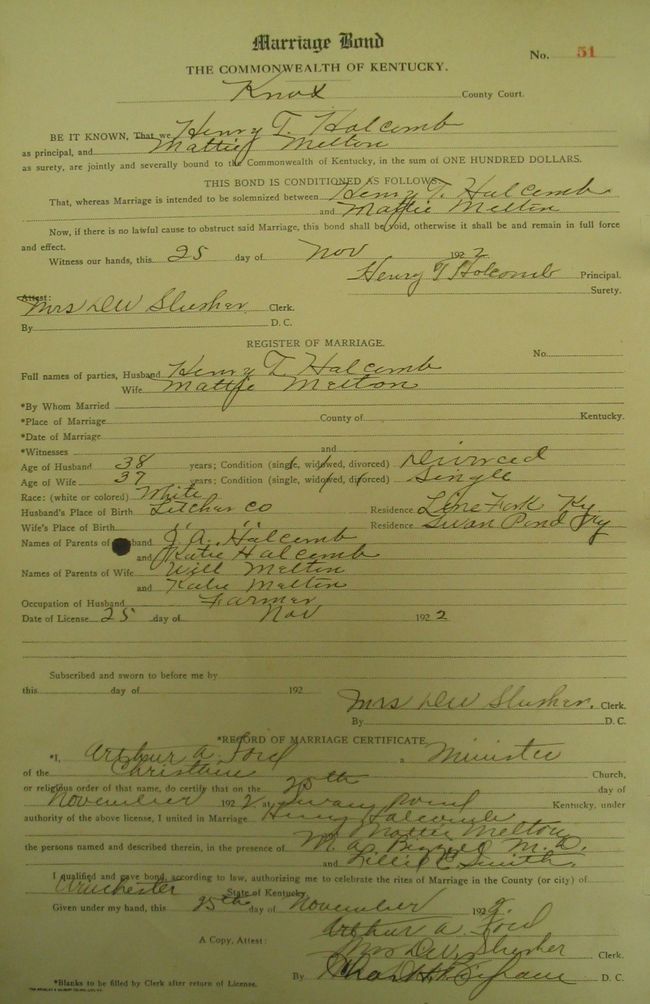 Marriage Bond
No. 51
THE COMMONWEALTH OF KENTUCKY.
Knox County Court.
BE IT KNOWN, That we Henry T. Holcomb
as principal, and Mattie Melton
as surety, are jointly and severally bound to the Commonwealth of Kentucky, in the sum of ONE HUNDRED DOLLARS.
THIS BOND IS CONDITIONED AS FOLLOWS:
That, whereas Marriage is intended to be solemnized between Henry T. Holcomb
and Mattie Melton
Now, if there is no lawful cause to obstruct said Marriage, this bond shall be void, otherwise it shall be and remain in full force
and effect.
Witness our hands, this 25 day of Nov 1922
Henry T Holcomb Principal.
Surety.
Attest:
Mrs DW Slusher Clerk.
By D. C.
REGISTER OF MARRIAGE.
No.
Full names of parties, Husband Henry T. Holcomb
Wife Mattie Melton
*By Whom Married
*Place of Marriage County of Kentucky.
*Date of Marriage
*Witnesses and
Age of Husband 38 years; Condition (single, widowed, divorced) Divorced
Age of Wife 37 years; Condition (single, widowed, divorced) Single
Race: (white or colored) White
Husband's Place of Birth Letcher Co Residence Line Fork Ky
Wife's Place of Birth " " Residence Swan Pond Ky
Names of Parents of Husband J. A. Holcomb
and Katie Holcomb
Names of Parents of Wife Will Melton
and Katie Melton
Occupation of Husband Farmer
Date of License 25 day of Nov 1922
Subscribed and sworn to before me by
this day of 192
Mrs DW Slusher. Clerk.
By D. C.
*RECORD OF MARRIAGE CERTIFICATE
*I, Arthur A. Ford, Minister
of the Christian Church,
or religious order of that name, do certify that on the 25th day of
November 1922 at Swan Pond Kentucky, under
authority of the above license, I united in Marriage Henry Holcomb
Mattie Melton
the persons named and described therein, in the presence of M. D.
and Lillie Smith.
I qualified and gave bond, according to law, authorizing me to celebrate the rites of Marriage in the County (or city) of
Winchester State of Kentucky
Given under my hand, this 25th day of November 1922.
Arthur A. Ford
A Copy, Attest: Mrs DW. Slusher Clerk.
By
*Blanks to be filled by Clerk after return of License.